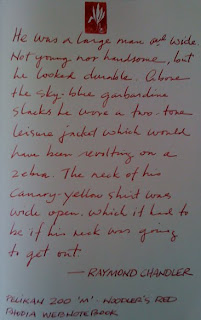 He was a large man and wide.
Not young nor handsome, but
he looked durable. Above
the sky-blue gabardine
slacks he wore a two-tone
leisure jacket which would
have been revolting on a
zebra. The neck of his
canary-yellow shirt was
wide open. which it had to
be if his neck was going
to get out
— RAYMOND CHANDLER
PELIKAN 200 'M' - NOODLER'S RED
RHODIA WEBNOTEBOOK